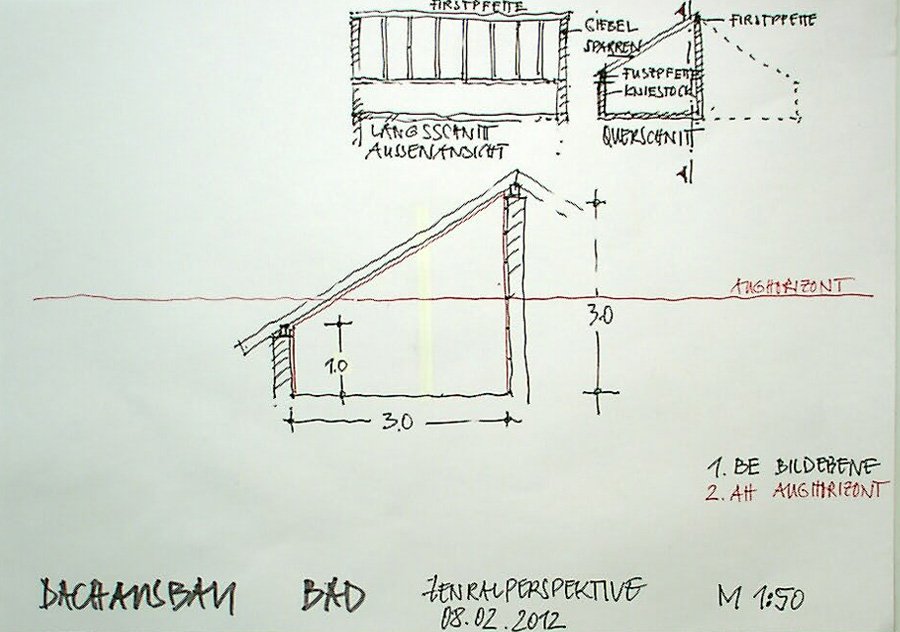 FIRSTPFETTE
GIEBEL
SPARREN
FIRSTPFETTE
FUSZPFETTE
KNIESTOCK
LÄNGSSCHNITT
AUSSENANSICHT
QUERSCHNITT
AUGHORIZONT
3.0
1.0
3.0
1. BE BILDEBENE
2. AH AUGHORIZONT
DACHAUSBAU BAD ZENRALPERSPEKTIVE M 1:50
08.02.2012